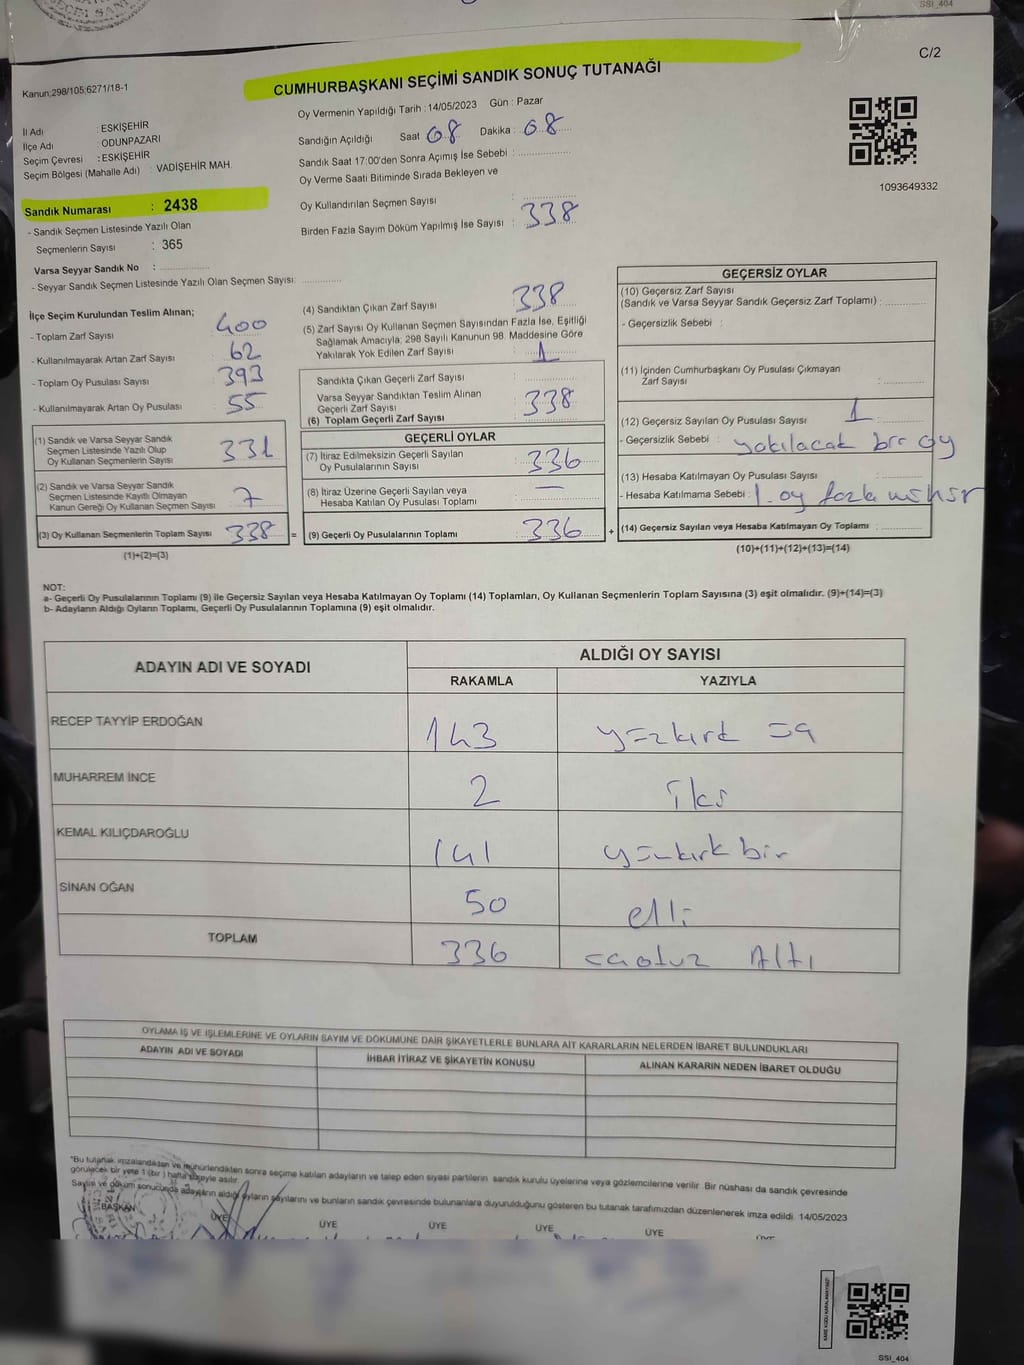 SSI_404
C/2
Kanun:298/105;6271/18-1
CUMHURBAŞKANI SEÇİMİ SANDIK SONUÇ TUTANAĞI
Oy Vermenin Yapıldığı Tarih : 14/05/2023 Gün : Pazar
İl Adı : ESKİŞEHİR
İlçe Adı ODUNPAZARI
Seçim Çevresi : ESKİŞEHİR
Seçim Bölgesi (Mahalle Adı) : VADİŞEHİR MAH.
Sandığın Açıldığı Saat 08 Dakika : 08
Sandık Saat 17:00'den Sonra Açımış İse Sebebi :
Oy Verme Saati Bitiminde Sırada Bekleyen ve
Oy Kullandırılan Seçmen Sayısı :
Birden Fazla Sayım Döküm Yapılmış İse Sayısı : 338
1093649332
Sandık Numarası : 2438
- Sandık Seçmen Listesinde Yazılı Olan
Seçmenlerin Sayısı : 365
Varsa Seyyar Sandık No :
- Seyyar Sandık Seçmen Listesinde Yazılı Olan Seçmen Sayısı:
İlçe Seçim Kurulundan Teslim Alınan;
- Toplam Zarf Sayısı : 400
- Kullanılmayarak Artan Zarf Sayısı : 62
- Toplam Oy Pusulası Sayısı : 393
- Kullanılmayarak Artan Oy Pusulası : 55
(1) Sandık ve Varsa Seyyar Sandık
Seçmen Listesinde Yazılı Olup
Oy Kullanan Seçmenlerin Sayısı : 331
(2) Sandık ve Varsa Seyyar Sandık
Seçmen Listesinde Kayıtlı Olmayan
Kanun Gereği Oy Kullanan Seçmen Sayısı : 7
(3) Oy Kullanan Seçmenlerin Toplam Sayısı : 338 =
(1)+(2)=(3)
(4) Sandıktan Çıkan Zarf Sayısı : 338
(5) Zarf Sayısı Oy Kullanan Seçmen Sayısından Fazla İse, Eşitliği
Sağlamak Amacıyla; 298 Sayılı Kanunun 98. Maddesine Göre
Yakılarak Yok Edilen Zarf Sayısı : 1
Sandıkta Çıkan Geçerli Zarf Sayısı :
Varsa Seyyar Sandıktan Teslim Alınan
Geçerli Zarf Sayısı :
(6) Toplam Geçerli Zarf Sayısı : 338
GEÇERLİ OYLAR
(7) İtiraz Edilmeksizin Geçerli Sayılan
Oy Pusulalarının Sayısı : 336
(8) İtiraz Üzerine Geçerli Sayılan veya
Hesaba Katılan Oy Pusulası Toplamı : —
(9) Geçerli Oy Pusulalarının Toplamı : 336 +
GEÇERSİZ OYLAR
(10) Geçersiz Zarf Sayısı
(Sandık ve Varsa Seyyar Sandık Geçersiz Zarf Toplamı) :
- Geçersizlik Sebebi :
(11) İçinden Cumhurbaşkanı Oy Pusulası Çıkmayan
Zarf Sayısı :
(12) Geçersiz Sayılan Oy Pusulası Sayısı : 1
- Geçersizlik Sebebi : yakılacak bir oy
(13) Hesaba Katılmayan Oy Pusulası Sayısı :
- Hesaba Katılmama Sebebi : 1 oy fazla
(14) Geçersiz Sayılan veya Hesaba Katılmayan Oy Toplamı :
(10)+(11)+(12)+(13)=(14)
NOT:
a- Geçerli Oy Pusulalarının Toplamı (9) ile Geçersiz Sayılan veya Hesaba Katılmayan Oy Toplamı (14) Toplamları, Oy Kullanan Seçmenlerin Toplam Sayısına (3) eşit olmalıdır. (9)+(14)=(3)
b- Adayların Aldığı Oyların Toplamı, Geçerli Oy Pusulalarının Toplamına (9) eşit olmalıdır.
ADAYIN ADI VE SOYADI ALDIĞI OY SAYISI
RAKAMLA YAZIYLA
RECEP TAYYİP ERDOĞAN 143 yüzkırk üç
MUHARREM İNCE 2 iki
KEMAL KILIÇDAROĞLU 141 yüzkırk bir
SİNAN OĞAN 50 elli
TOPLAM 336 Altı
OYLAMA İŞ VE İŞLEMLERİNE VE OYLARIN SAYIM VE DÖKÜMÜNE DAİR ŞİKAYETLERLE BUNLARA AİT KARARLARIN NELERDEN İBARET BULUNDUKLARI
ADAYIN ADI VE SOYADI İHBAR İTİRAZ VE ŞİKAYETİN KONUSU ALINAN KARARIN NEDEN İBARET OLDUĞU
"Bu tutanak imzalandıktan ve mühürlendikten sonra seçime katılan adayların ve talep eden siyasi partilerin sandık kurulu üyelerine veya gözlemcilerine verilir. Bir nüshası da sandık çevresinde
görülecek bir yere 1 (bir) hafta süreyle asılır.
Sayım ve döküm sonucunda adayların aldığı oyların sayılarını ve bunların sandık çevresinde bulunanlara duyurulduğunu gösteren bu tutanak tarafımızdan düzenlenerek imza edildi. 14/05/2023
BAŞKAN ÜYE ÜYE ÜYE ÜYE ÜYE
SSI_404